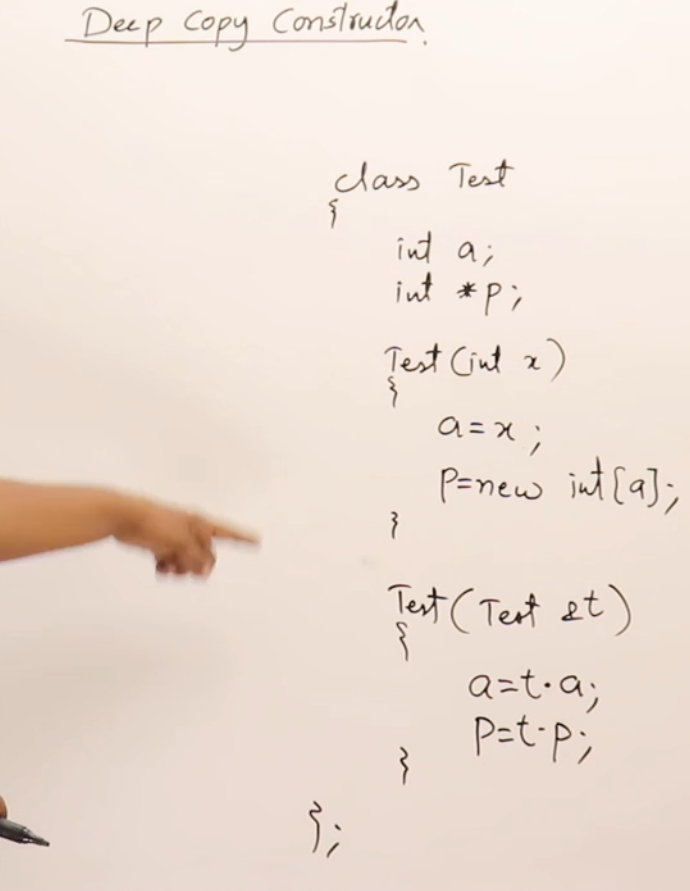 Deep Copy Constructor.
class Test
{
int a;
int *p;
Test(int x)
{
a=x;
p=new int[a];
}
Test(Test &t)
{
a=t.a;
p=t.p;
}
};